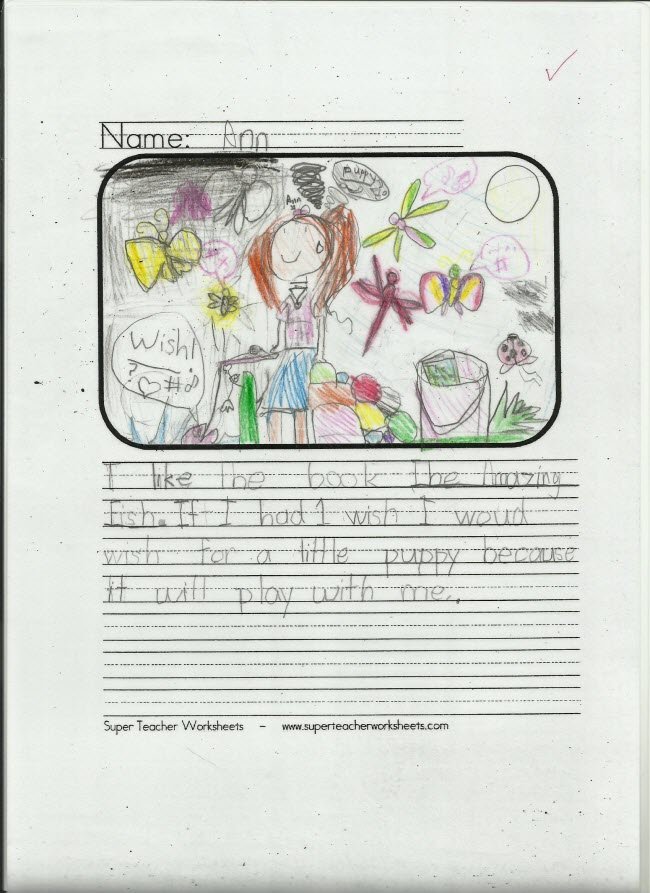 Name: Ann
puppy
Ann
Wish!
?
#
#
I like the book The Amazing
fish. If I had 1 wish I woud
wish for a little puppy because
it will play with me..
Super Teacher Worksheets - www.superteacherworksheets.com